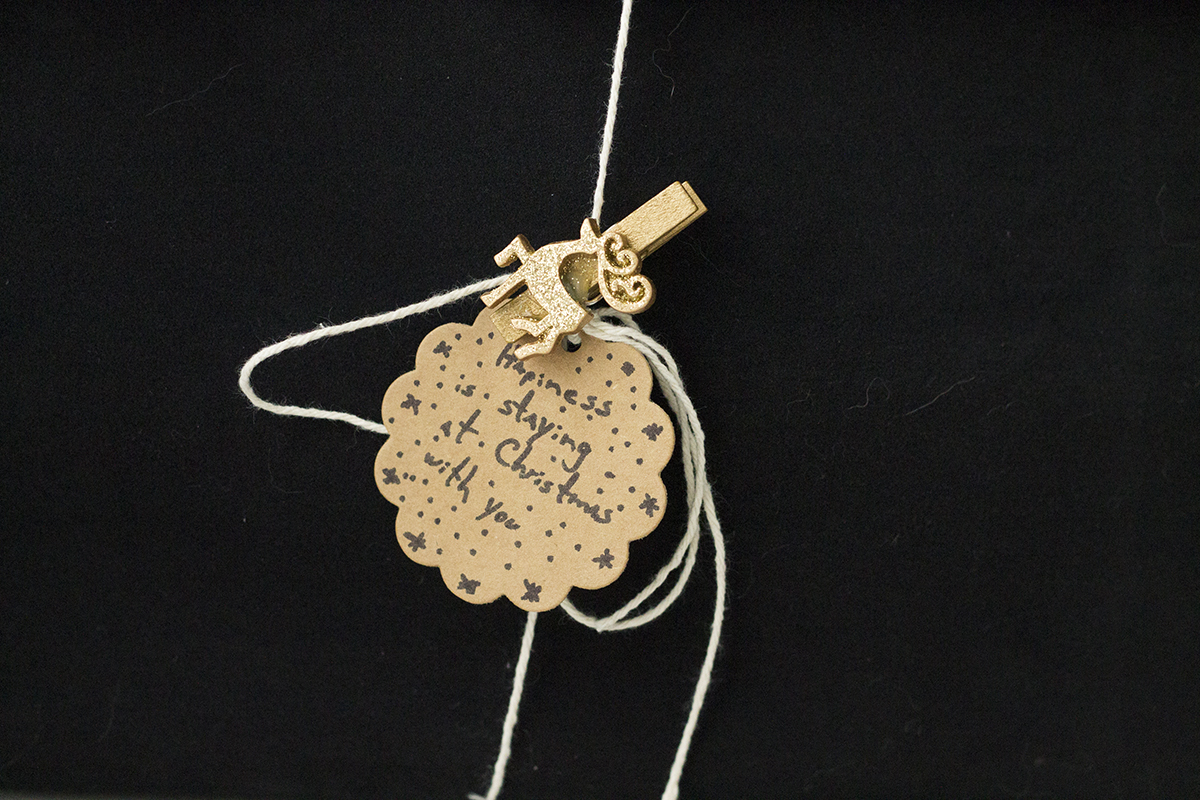 Hapiness
is staying
at Christmas
with you